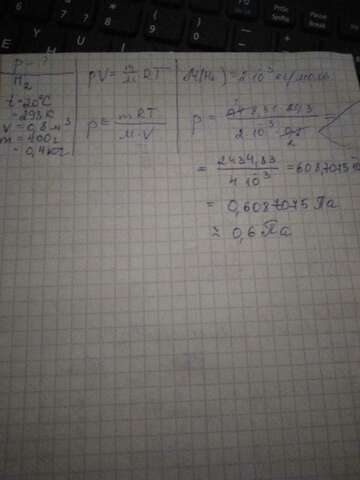 p - ?
H₂
t = 20°C
= 293K
V = 0,8 м³
m = 400г
= 0,4кг
pV = m/M RT
p = mRT/M·V
M(H₂) = 2·10⁻³ кг/моль
p = 0,4·8,31·293/2·10⁻³·0,8 =
= 2434,83/4·10⁻³ = 6087075·10
= 0,6087075 Па
≈ 0,6 Па